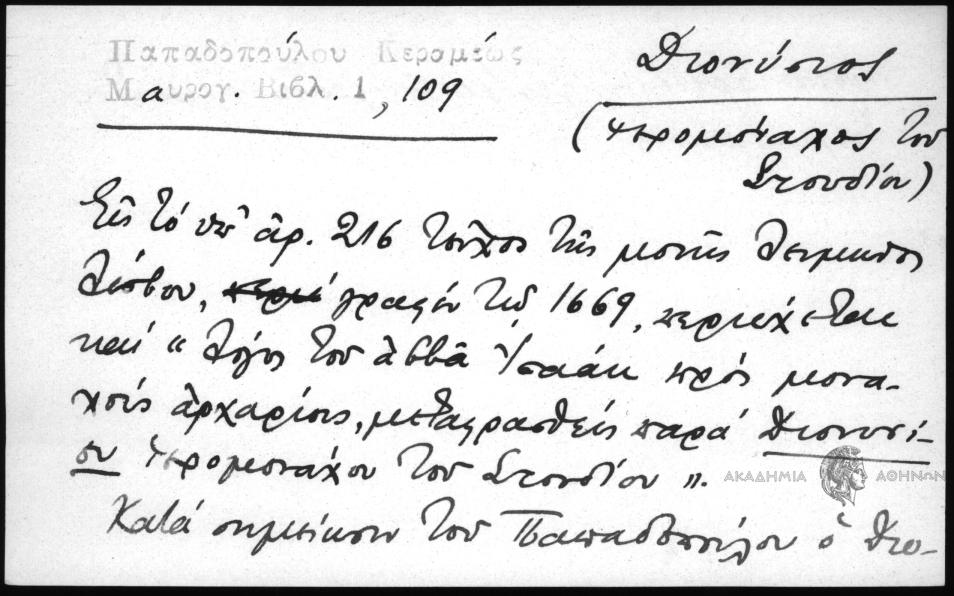 Παπαδοπούλου Κεραμέως
Μαυρογ. Βιβλ. 1, 109
Διονύσιος
(ἱερομόναχος τοῦ
Στουδίου)
Εἰς τό ὑπ' ἀρ. 216 τεῦχος τῆς μονῆς Λειμῶνος
Λέσβου, γραφέν τῷ 1669, περιέχεται
καί "Λόγος τοῦ ἀββᾶ Ἰσαάκ πρός μονα-
χούς ἀρχαρίους, μεταφρασθείς παρά Διονυσί-
ου ἱερομονάχου τοῦ Στουδίου".
ΑΚΑΔΗΜΙΑ ΑΘΗΝΩΝ
Κατά σημείωσιν τοῦ Παπαδοπούλου ὁ Διο-